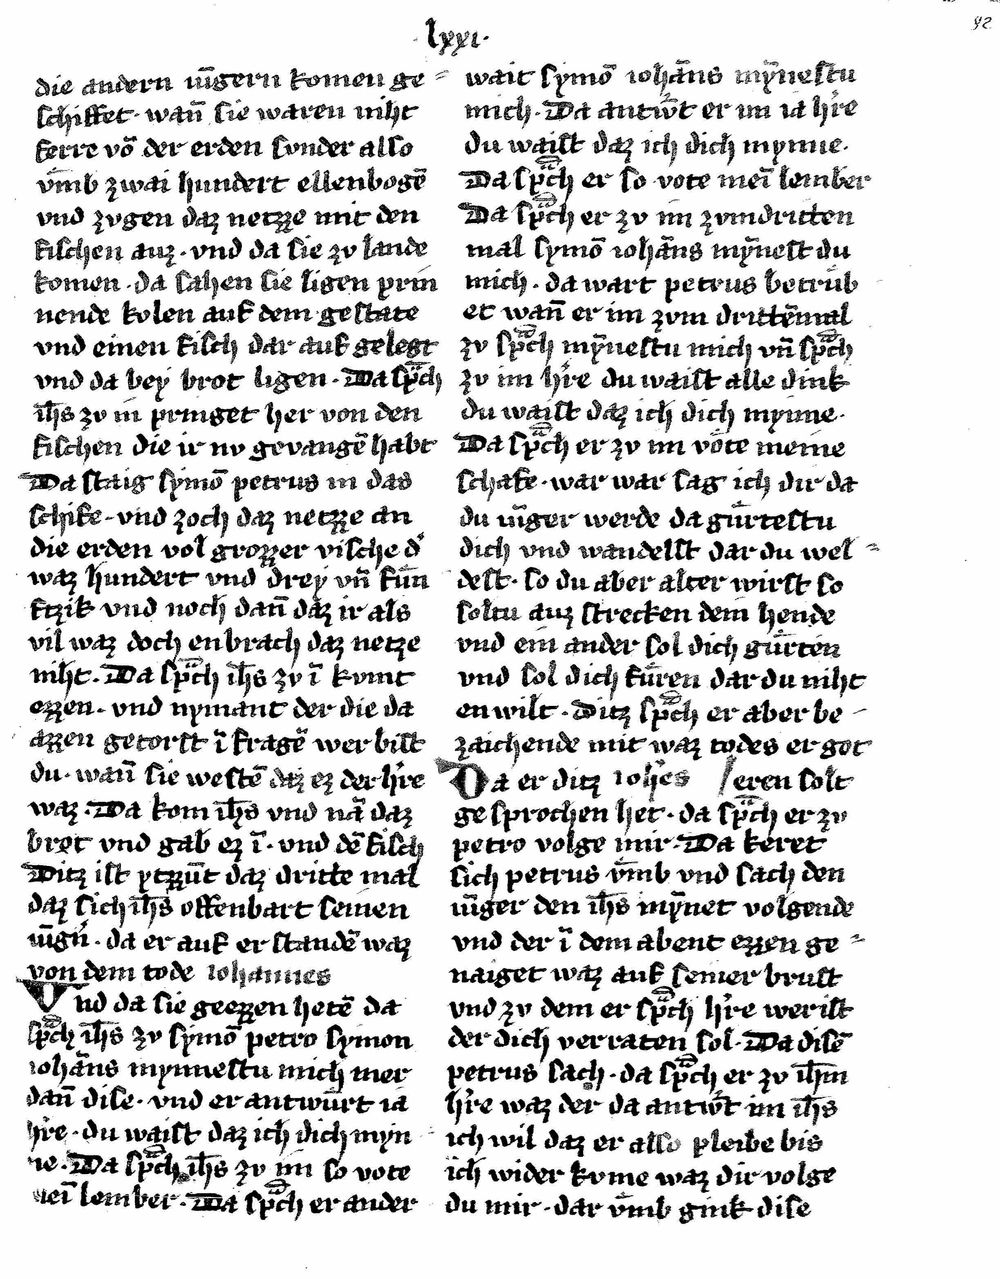 ·lxxi·
92
die andern iu̅gern komen ge⸗
schiffet· wan̅ sie waren niht
ferre vo̅ der erden sunder also
vm̅b zwai hundert ellenboge̅
vnd zugen daz netzze mit den
fischen auz· vnd da sie zv lande
komen· da sahen sie ligen prin
nende kolen auf dem gestate
vnd einen fisch dar auf gelegt
vnd da bey brot ligen· Da spͣch
ih̅s zv in pringet her von den
fischen die ir nv gevange̅ habt
Da staig symo̅ petrus in das
schife· vnd zoch daz netzze an
die erden vol grozzer vische dͤ
waz hundert vnd drey vn̅ fu̅n
ftzik vnd noch dan̅ daz ir als
vil waz doch enbrach daz netze
niht· Da spͣch ih̅s zv i̅ kvmt
ezzen· vnd nymant der die da
azzen getorst i̅ frage̅ wer bist
du· wan̅ sie weste̅ daz ez der hr̅e
waz· Da kom ih̅s vnd na̅ daz
brot vnd gab ez i̅· vnd de̅ fisch
Ditz ist ytzzu̅t daz dritte mal
daz sich ih̅s offenbart seinen
iu̅gn̅· da er auf er stande̅ waz
von dem tode iohannes
Vnd da sie geezzen hete̅ da
spͣch ih̅s zv symo̅ petro symon
ioha̅ns mynnestu mich mer
dan̅ dise· vnd er antwu̅rt ia
hr̅e· du waist daz ich dich myn
ne· Da spͣch ih̅s zv im so vote
mei̅ lember· Da spͣch er ander
wait symo̅ ioha̅ns my̅nestu
mich· Da antwͦt er im ia hr̅e
du waist daz ich dich mynne·
Da spͣch er so vote mei̅ lember
Da spͣch er zv im zvmdritten
mal symo̅ ioha̅ns my̅nest du
mich· da wart petrus betrub
et wan̅ er im zvm dritte̅mal
zv spͣch my̅nestu mich vn̅ spͣch
zv im hr̅e du waist alle dink
du waist daz ich dich mynne·
Da spͣch er zv im vote meine
schafe· war war sag ich dir da
du iu̅ger werde da gu̅rtestu
dich vnd wandelst dar du wel⸗
dest· so du aber alter wirst so
soltu auz strecken dein hende
vnd ein ander sol dich gu̅rten
vnd sol dich fu̅ren dar du niht
en wilt· Ditz spͣch er aber be⸗
zaichende mit waz todes er got
Da er ditz ioh̅es eren solt
gesprochen het· da spͣch er zv
petro volge mir· Da keret
sich petrus vm̅b vnd sach den
iu̅ger den ih̅s my̅net volgende
vnd der i̅ dem abent ezzen ge⸗
naiget waz auf seiner brust
vnd zv dem er spͣch hr̅e wer ist
der dich verraten sol· Da dise̅
petrus sach· da spͣch er zv ih̅m
hr̅e waz der da antwͦt im ih̅s
ich wil daz er also pleibe bis
ich wider kvme waz dir volge
du mir· dar vm̅b gink dise